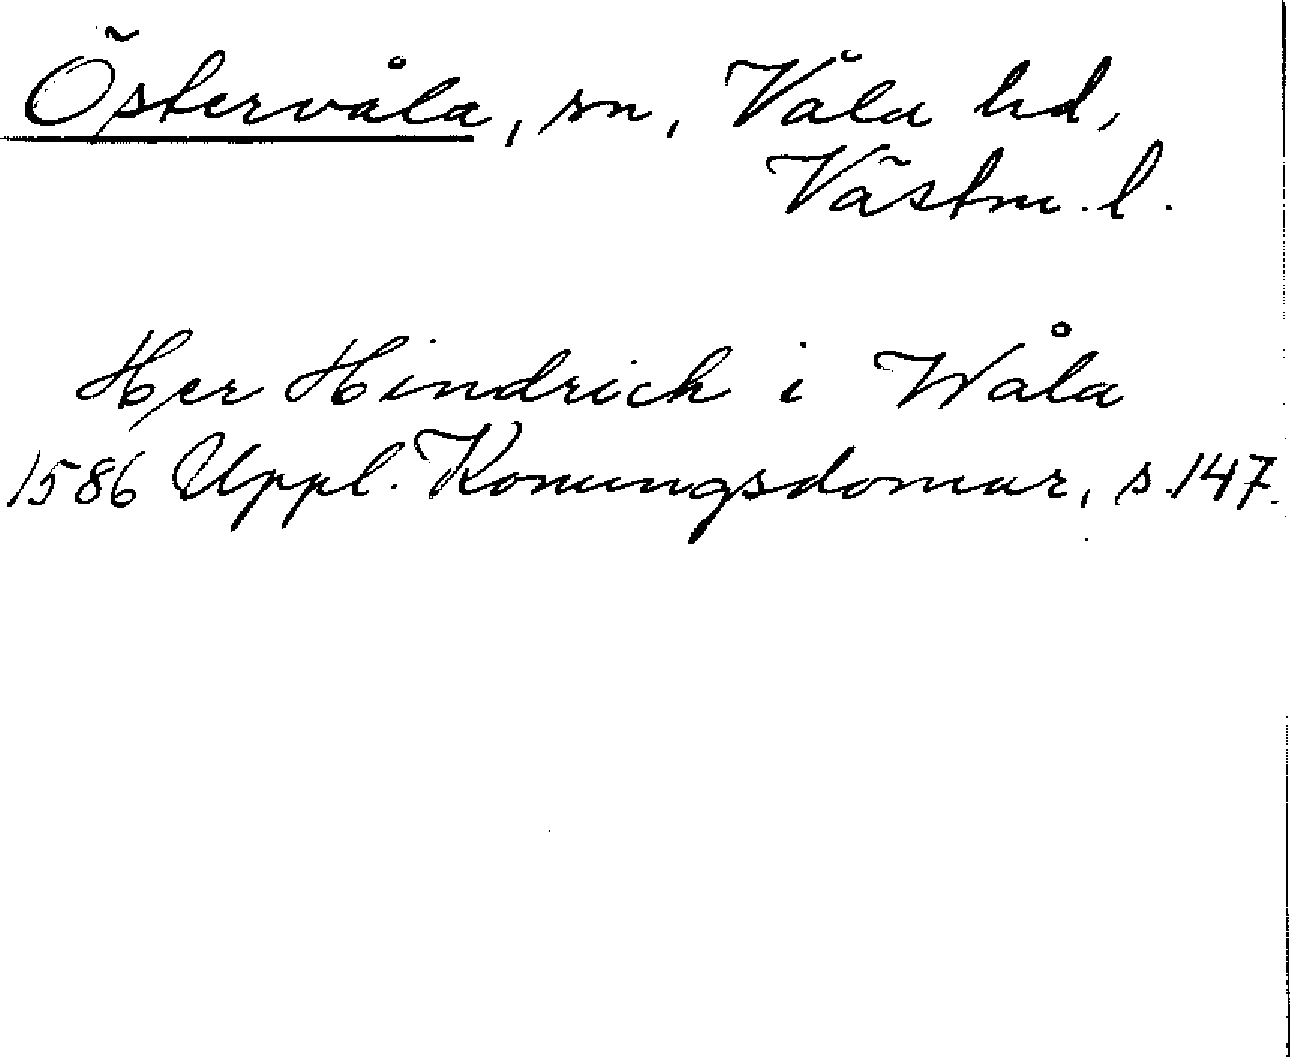 Östervåla, sn, Våla hd,
Västm. l.
Her Hindrich i Wåla
1586 Uppl. Konungsdomar, s. 147.